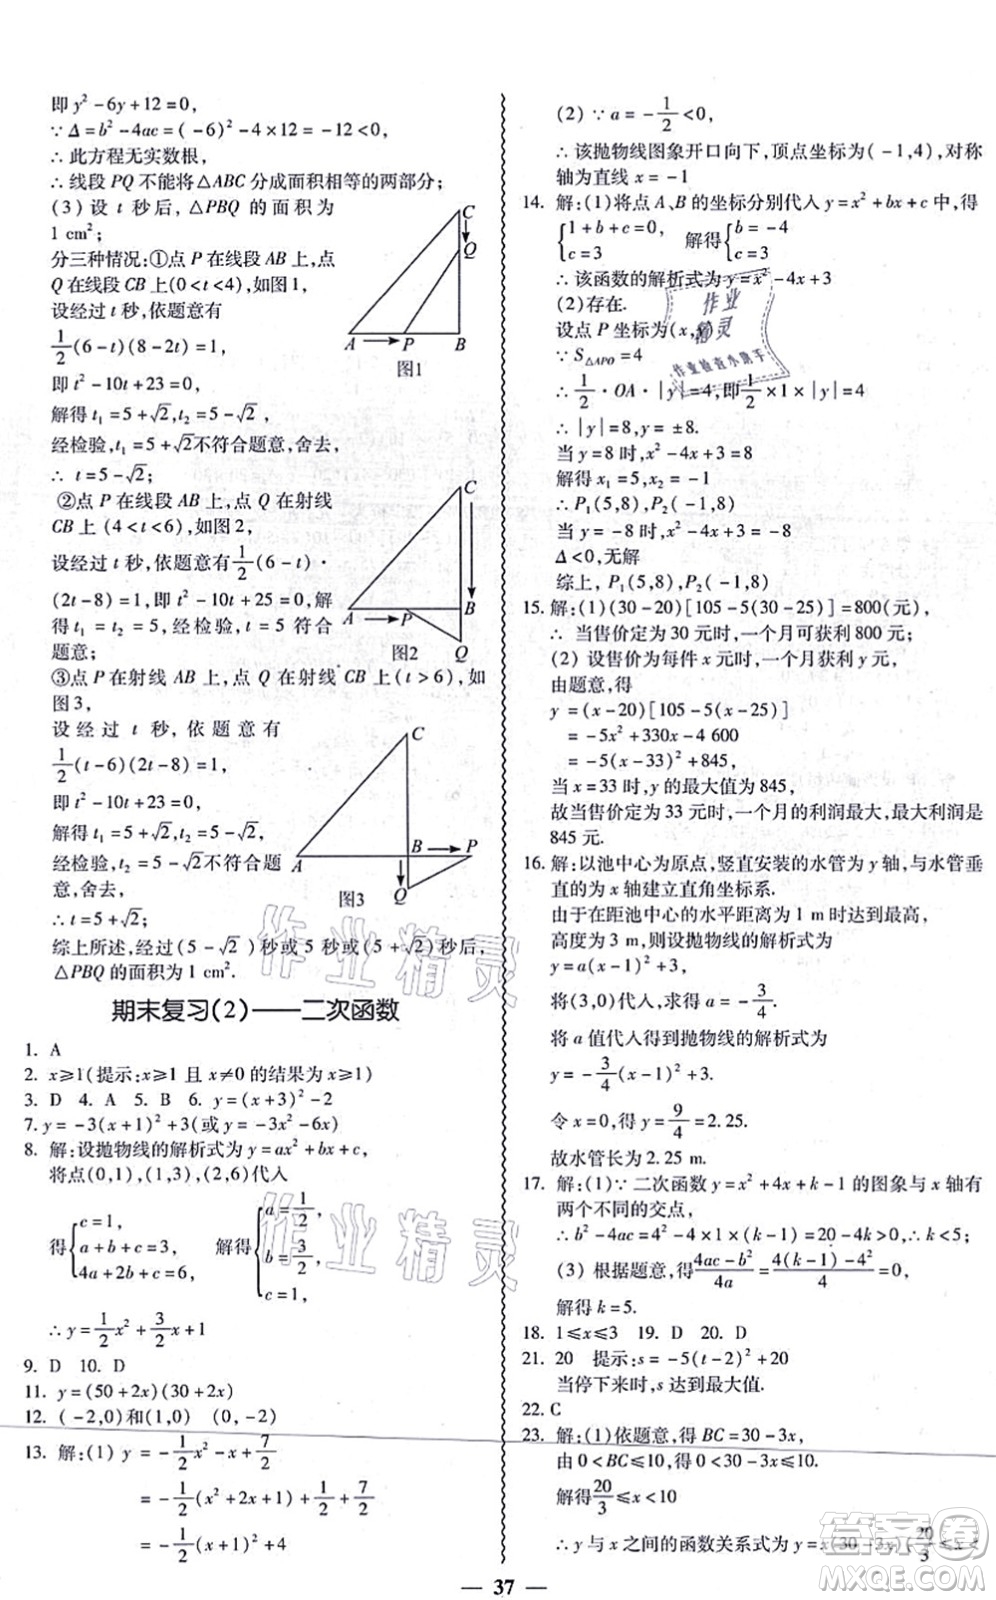 即 y²-6y+12=0,
∵Δ=b²-4ac=(-6)²-4×12=-12<0,
∴此方程无实数根,
∴线段 PQ 不能将△ABC 分成面积相等的两部分;
(3) 设 t 秒后,△PBQ 的面积为
1 cm²;
分三种情况:①点 P 在线段 AB 上,点
Q 在线段 CB 上(0<t<4),如图1,
设经过 t 秒,依题意有
1/2(6-t)(8-2t)=1,
即 t²-10t+23=0,
解得 t₁=5+√2,t₂=5-√2,
经检验,t₁=5+√2不符合题意,舍去,
∴ t=5-√2;
②点 P 在线段 AB 上,点 Q 在射线
CB 上 (4<t<6),如图2,
设经过 t 秒,依题意有1/2(6-t)·
(2t-8)=1,即 t²-10t+25=0,解
得 t₁=t₂=5,经检验,t=5 符合
题意;
③点 P 在射线 AB 上,点 Q 在射线 CB 上(t>6),如
图3,
设经过 t 秒,依题意有
1/2(t-6)(2t-8)=1,
即 t²-10t+23=0,
解得 t₁=5+√2,t₂=5-√2,
经检验,t=5-√2不符合题
意,舍去,
∴t=5+√2;
综上所述,经过(5-√2)秒或 5 秒或(5+√2)秒后,
△PBQ 的面积为1 cm².
C
Q
A P B
图1
C
A P B
Q
图2
C
A B P
Q
图3
期末复习(2)——二次函数
1. A
2. x≥1(提示:x≥1 且 x≠0 的结果为 x≥1)
3. D 4. A 5. B 6. y=(x+3)²-2
7. y=-3(x+1)²+3(或 y=-3x²-6x)
8. 解:设抛物线的解析式为 y=ax²+bx+c,
将点(0,1),(1,3),(2,6)代入
得{c=1, a+b+c=3, 4a+2b+c=6, 解得{a=1/2, b=3/2, c=1,
∴y=1/2x²+3/2x+1
9. D 10. D
11. y=(50+2x)(30+2x)
12. (-2,0)和(1,0) (0,-2)
13. 解:(1) y=-1/2x²-x+7/2
=-1/2(x²+2x+1)+1/2+7/2
=-1/2(x+1)²+4
(2) ∵a=-1/2<0,
∴该抛物线图象开口向下,顶点坐标为(-1,4),对称
轴为直线 x=-1
14. 解:(1)将点 A、B 的坐标分别代入 y=x²+bx+c 中,得
{1+b+c=0, c=3 解得{b=-4 c=3
∴该函数的解析式为 y=x²-4x+3
(2)存在.
设点 P 坐标为(x,y)
∵S△APO=4
∴1/2·OA·|y|=4,即1/2×1×|y|=4
∴|y|=8,y=±8.
当 y=8 时,x²-4x+3=8
解得 x₁=5,x₂=-1
∴P₁(5,8),P₂(-1,8)
当 y=-8 时,x²-4x+3=-8
Δ<0,无解
综上,P₁(5,8),P₂(-1,8)
15. 解:(1)(30-20)[105-5(30-25)]=800(元),
∴ 当售价定为 30 元时,一个月可获利 800 元;
(2) 设售价为每件 x 元时,一个月的获利 y 元,
由题意,得
y=(x-20)[105-5(x-25)]
=-5x²+330x-4 600
=-5(x-33)²+845,
当 x=33 时,y 的最大值为 845,
故当售价定为 33 元时,一个月的利润最大,最大利润是
845 元.
16. 解:以池中心为原点,竖直安装的水管为 y 轴,与水管垂
直的为 x 轴建立直角坐标系.
由于在距池中心的水平距离为 1 m 时达到最高,
高度为 3 m,则设抛物线的解析式为
y=a(x-1)²+3(0≤x≤3),
将(3,0)代入,求得 a=-3/4.
将 a 值代入得到抛物线的解析式为
y=-3/4(x-1)²+3(0≤x≤3).
令 x=0,得 y=9/4=2.25.
故水管长为 2.25 m.
17. 解:(1)∵二次函数 y=x²+4x+k-1 的图象与 x 轴有
两个不同的交点,
∴b²-4ac=4²-4×1×(k-1)=20-4k>0,∴k<5;
(3) 根据题意,得(4ac-b²)/4a=(4(k-1)-4²)/4=0,
解得 k=5.
18. 1≤x≤3 19. D 20. D
21. 20 提示:s=-5(t-2)²+20
当停下来时,s 达到最大值.
22. C
23. 解:(1)依题意,得 BC=30-3x,
由 0<BC≤10,得 0<30-3x≤10,
解得20/3≤x<10
∴y 与 x 之间的函数关系式为 y=x(30-3x)(20/3≤x<
作业
精灵
作业检查小助手
作业精灵
作业精灵
答案圈
MXQE.COM
— 37 —